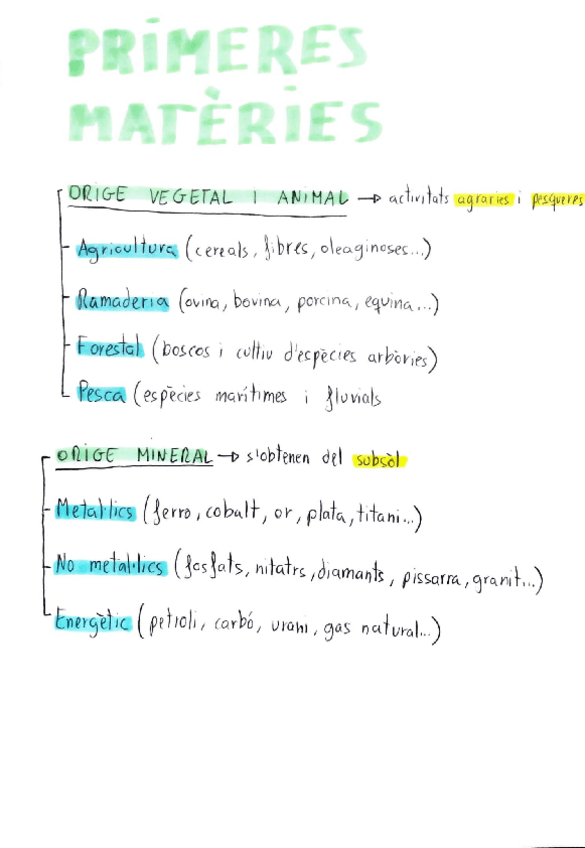 PRIMERES
MATÈRIES
ORIGE VEGETAL I ANIMAL → activitats agraries i pesqueres
Agricultura (cereals, fibres, oleaginoses...)
Ramaderia (ovina, bovina, porcina, equina...)
Forestal (boscos i cultiu d'espècies arbòries)
Pesca (espècies marítimes i fluvials
ORIGE MINERAL → s'obtenen del subsòl
Metal·lics (ferro, cobalt, or, plata, titani...)
No metal·lics (fosfats, nitatrs, diamants, pissarra, granit...)
Energètic (petroli, carbó, urani, gas natural...)